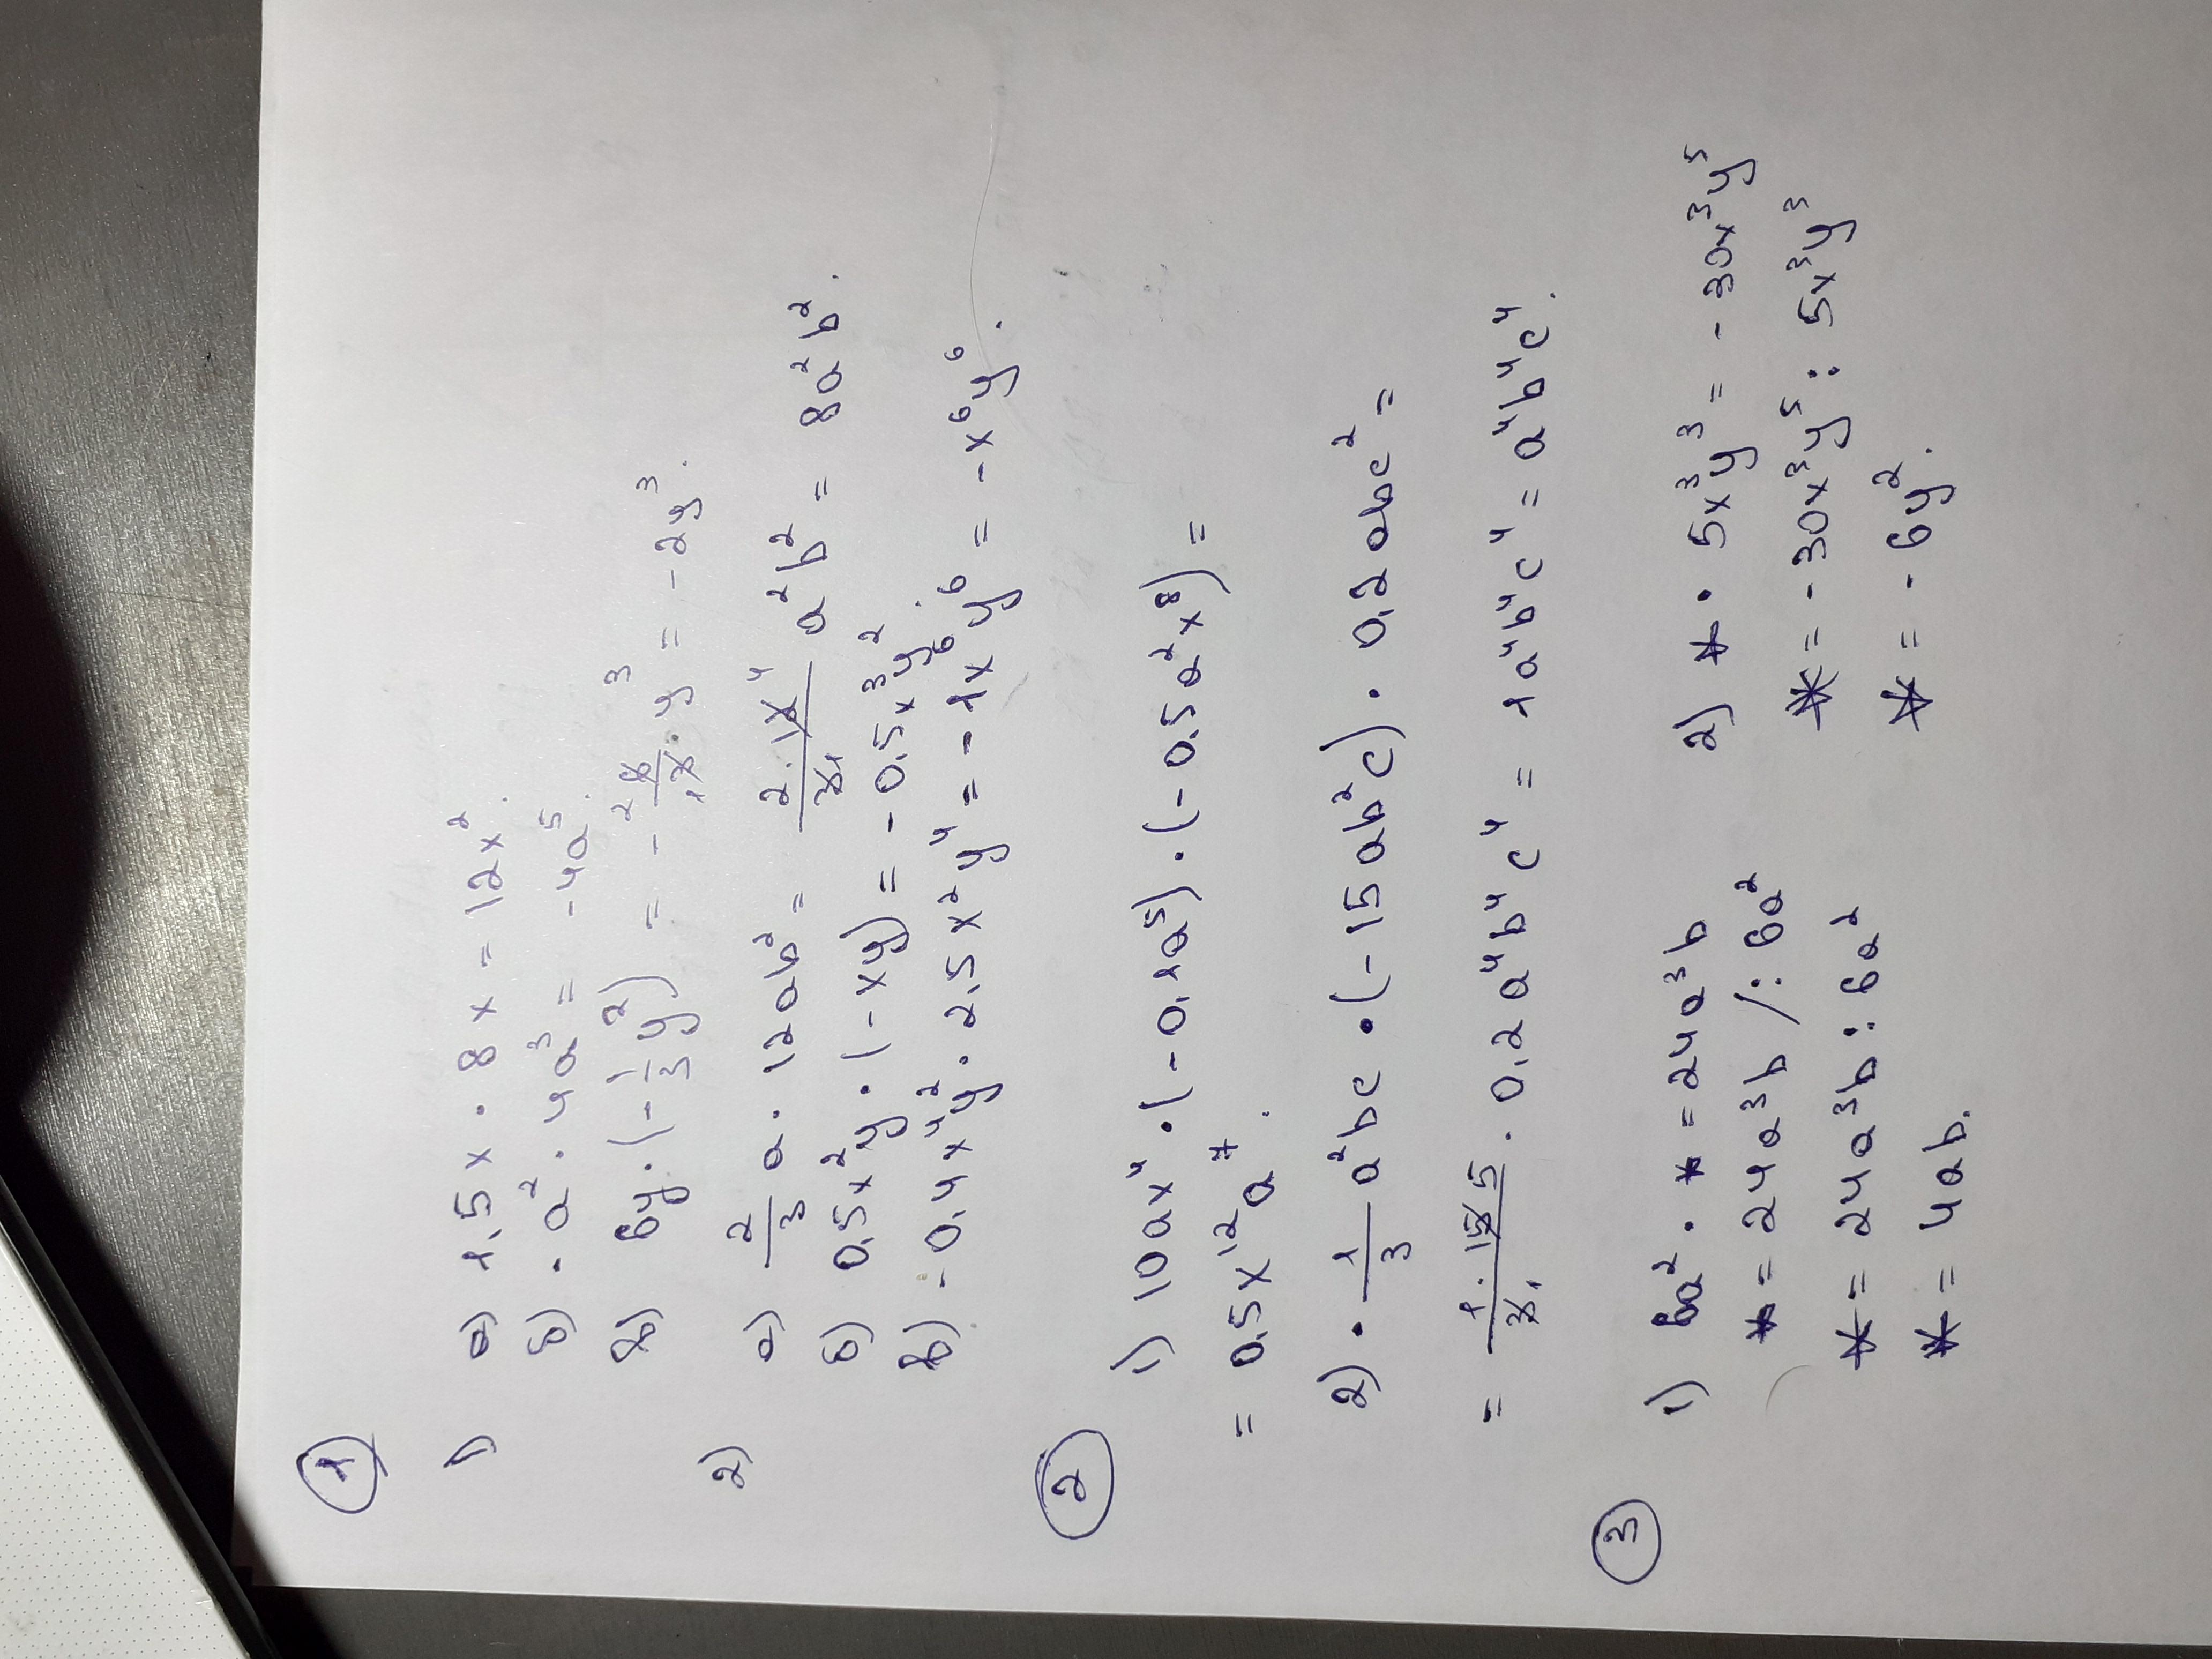 ①
1) а) 1,5x · 8x = 12x²
б) -a² · 4a³ = -4a⁵.
в) 6y · (-1/3 y²) = -6/3 · y³ = -2y³.
2) а) 2/3 a · 12ab² = 2·12/3 a²b² = 8a²b².
б) 0,5x²y · (-xy) = -0,5x³y².
в) -0,4x⁴y² · 2,5x²y⁴ = -1x⁶y⁶ = -x⁶y⁶.
②
1) 10ax⁴ · (-0,1a⁵) · (-0,5a²x⁸) =
= 0,5x¹²a⁷.
2) -1/3 a²bc · (-15ab²c) · 0,2abc² =
= 1·15 5/3 1 · 0,2a⁴b⁴c⁴ = 1a⁴b⁴c⁴ = a⁴b⁴c⁴.
③
1) 6a² · * = 24a³b
* = 24a³b /: 6a²
* = 24a³b : 6a²
* = 4ab.
2) * · 5x³y³ = -30x³y⁵
* = -30x³y⁵ : 5x³y³
* = -6y².